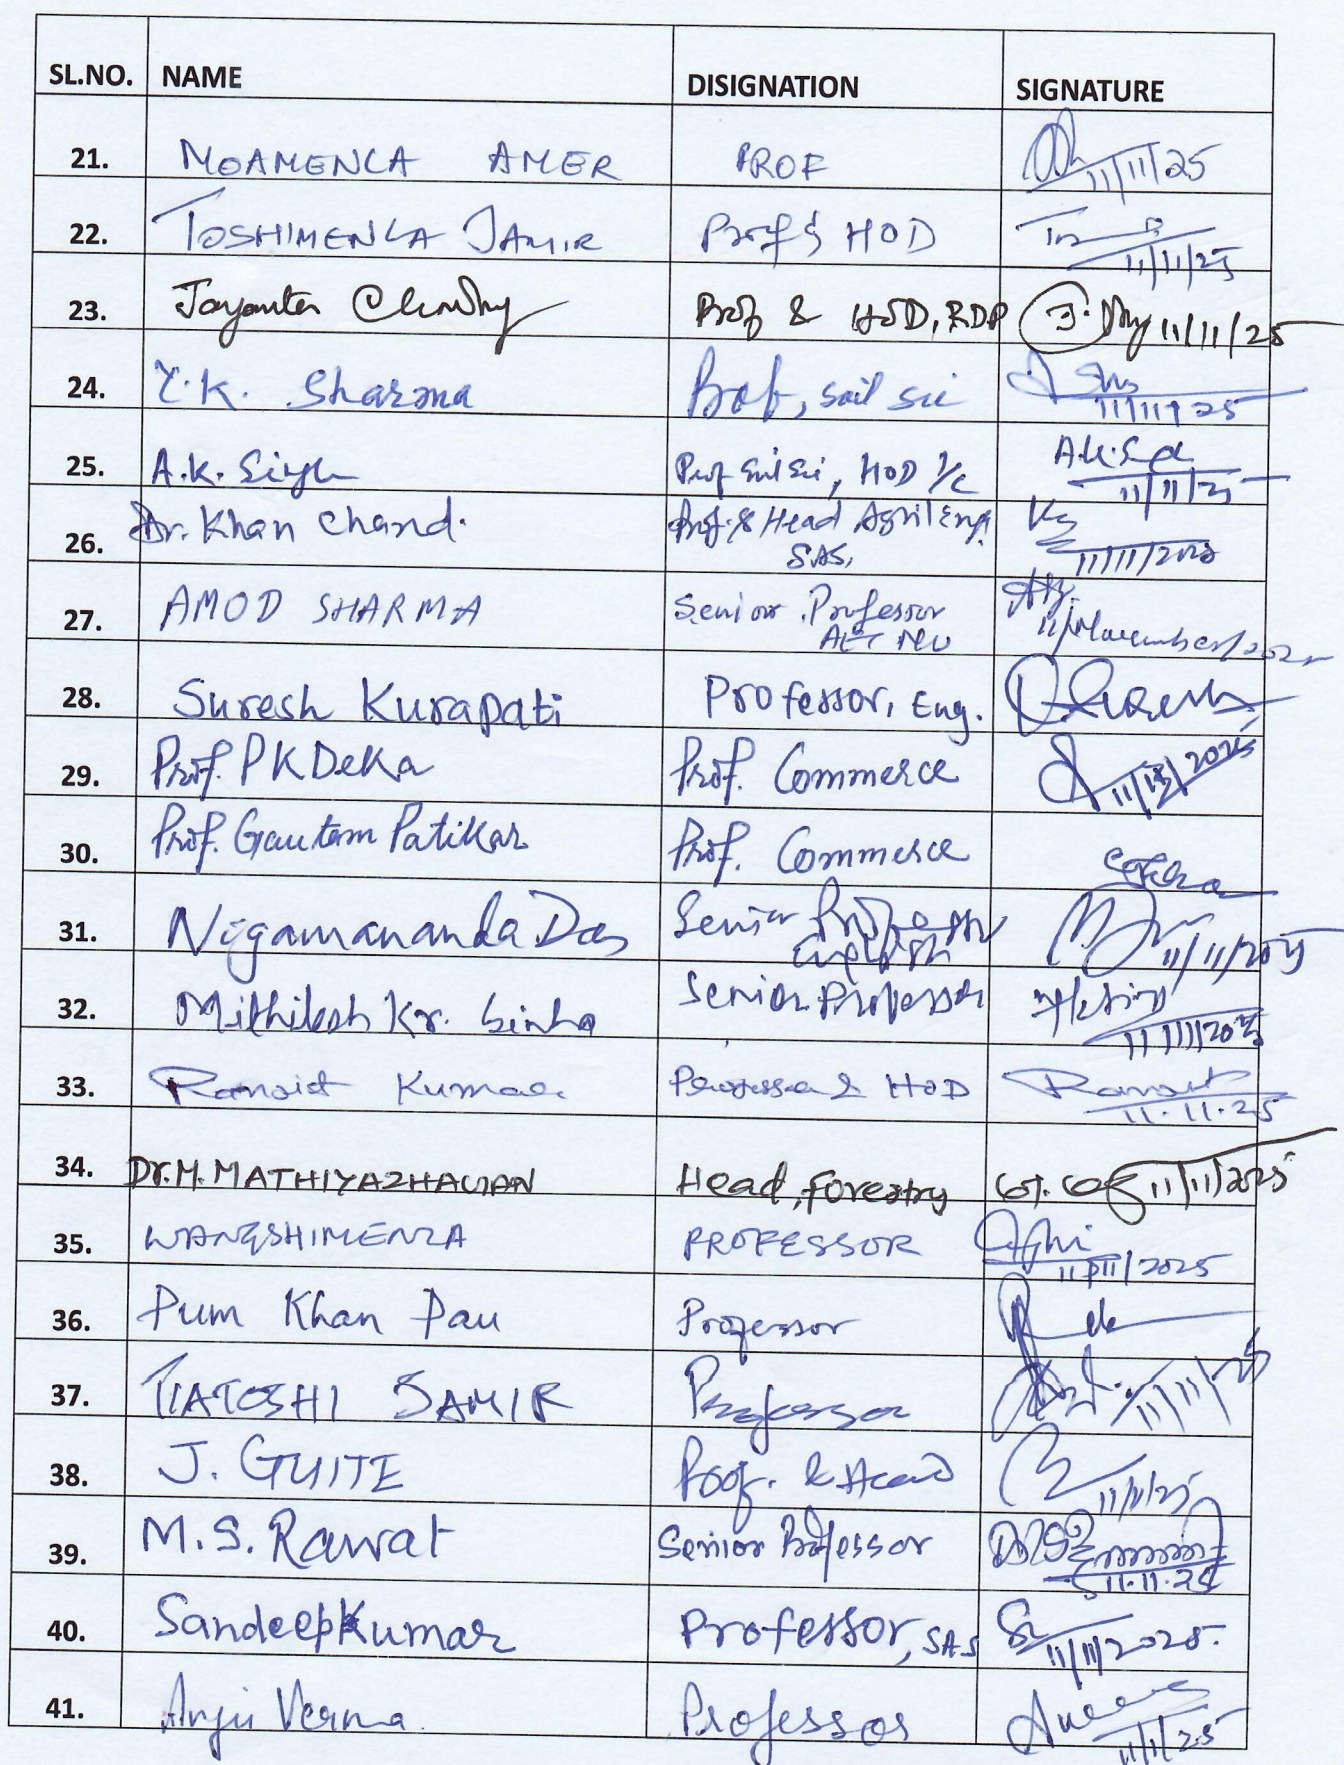 SL.NO. NAME DISIGNATION SIGNATURE
21. MOAMENLA AMER PROF 11/11/25
22. TOSHIMENLA JAMIR Prof & HOD 11/11/25
23. Jayanta Choudhury Prof & HOD, RDP 11/11/25
24. Y.K. Sharma Prof, Soil Sci 11/11/25
25. A.K. Singh Prof Soil Sci, HOD I/c A.K.S 11/11/25
26. Dr. Khan Chand. Prof. & Head Agril Eng.
SAS, 11/11/2025
27. AMOD SHARMA Senior Professor
AEC NU 11/November/2025
28. Suresh Kurapati Professor, Eng. Suresh
29. Prof. P K Deka Prof. Commerce 11/11/2025
30. Prof. Gautam Patikar Prof. Commerce
31. Nigamananda Das Senior Professor
English 11/11/2025
32. Mithilesh Kr. Sinha Senior Professor 11/11/2025
33. Ranjit Kumar Professor & HOD Ranjit
11.11.25
34. Dr. M. MATHIYAZHAGAN Head, forestry 11/11/2025
35. WANGSHIMENLA PROFESSOR 11/11/2025
36. Pum Khan Pau Professor
37. TIATOSHI JAMIR Professor 11/11/25
38. J. GUITE Prof. & Head 11/11/25
39. M.S. Rawat Senior Professor 11.11.25
40. Sandeep Kumar Professor, SAS 11/11/2025.
41. Anju Verma Professor 11/11/25